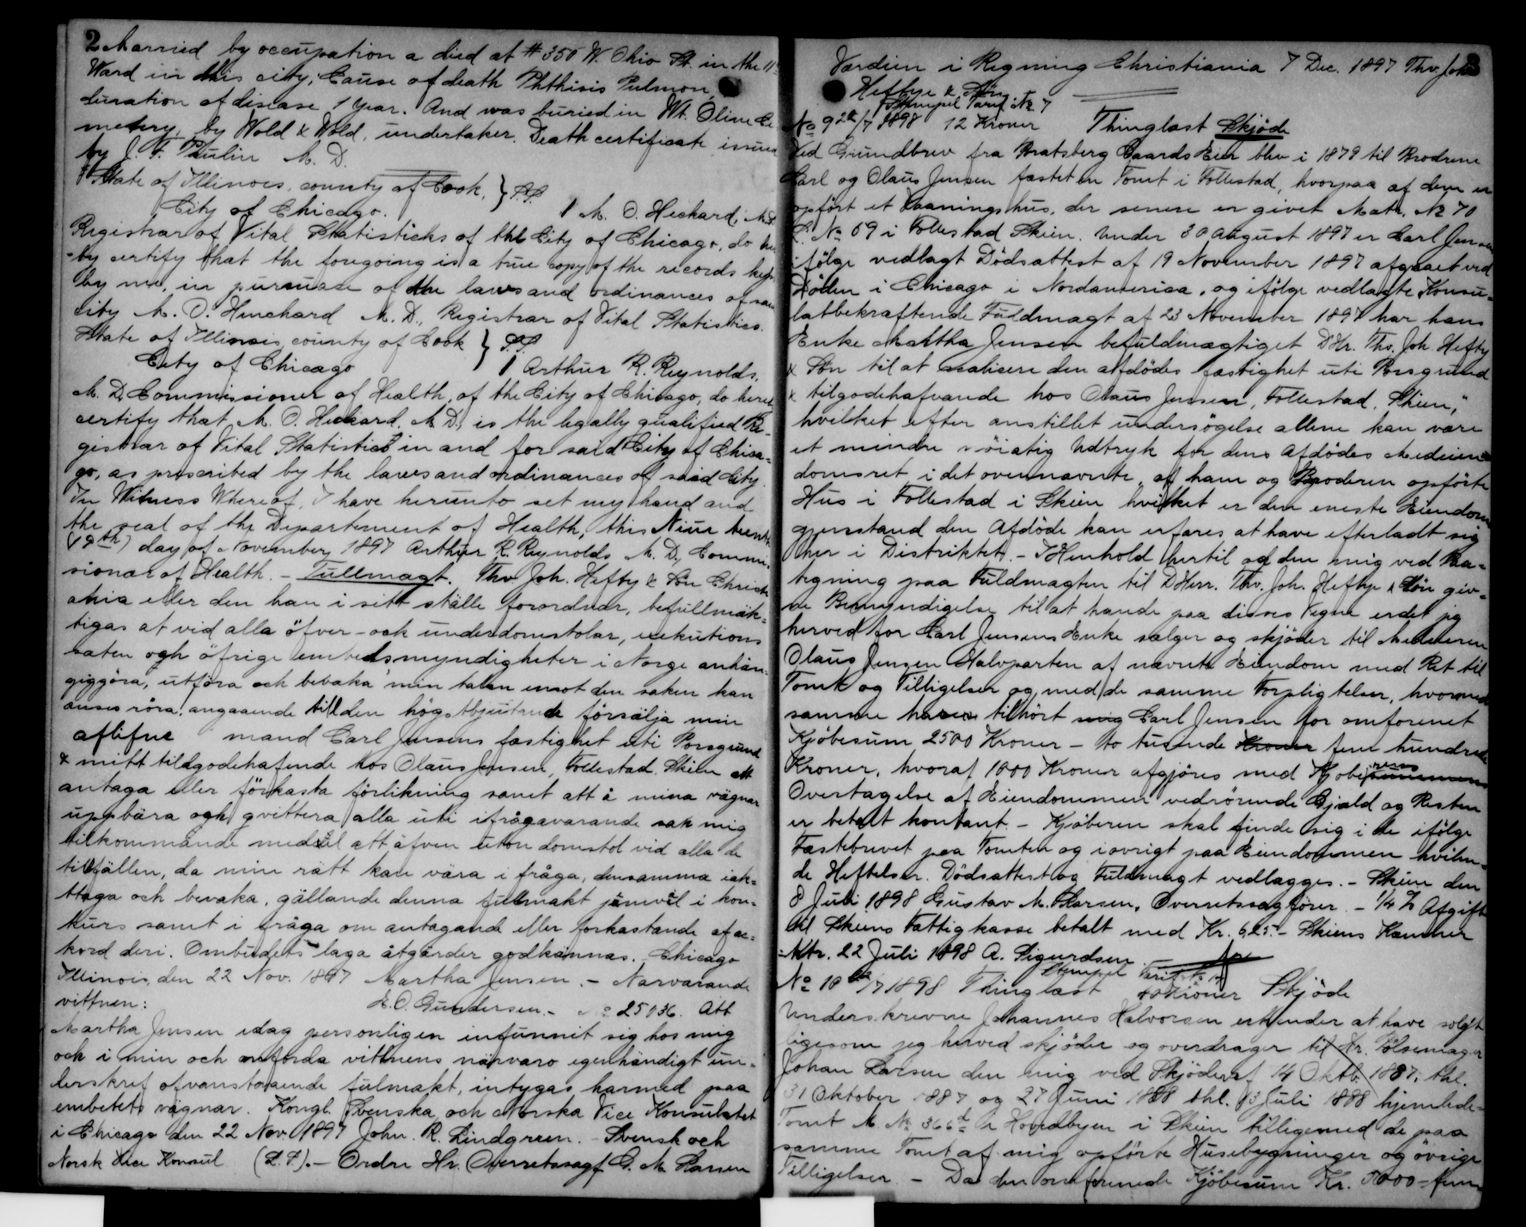 2 Married by occupation a died at # 350 W. Ohio St. in the 11th
Ward in this city, Cause of death Phthisis Pulmon,
duration of disease 1 year. And was buried in Mt. Olive Ce
metery, by Wold & Wold, undertaker. Death certificate issued
by J. F. Paulin M. D.
State of Illinois, county of Cook, } SS.
City of Chicago. I M. O. Heckard, M.D.
Registrar of Vital Statisticks of the City of Chicago, do here
=by certify that the foregoing is a true copy of the records kept
by me, in pursuace of the laws and ordinances of said
city M. O. Heuchard M. D., Registrar of Vital Statistics.
State of Illinois, county of Cook } SS
City of Chicago I Arthur R. Reynolds,
M. D. Commissioner of Health, of the City of Chicago, do hereby
certify that M. O. Heckard, M. D. is the legally qualified Re-
gistrar of Vital Statistics in and for said City of Chica=
go, as prescribed by the laws and ordinances of said City
In Witness Whereof, I have hereunto set my hand and
the seal of the Departement of Health, this Nine teenth
(19th) day of November 1897 Arthur R. Reynolds M. D., Commis
sionar of Health. – Fullmagt. Thv. Joh. Hefty & Søn Christi
ania eller den han i sitt ställe förordnar, befullmäk-
tigas at vid alla öfver- och underdomstolar, exekutions
saten ogh öfrige embedsmyndigheter i Norge anhän=
giggöra, utföra och bevaka min talan emot den saken kan
anses röra, angaaende till den högstbjudande försälja min
aflifne mand Carl Jensens fastighet uti Porsgrund
& mitt tilldgodehafende hos Olaus Jensen, Follestad, Skien att
antaga eller förkasta förlikning samt att å mina vägnar
uppbära ogh qvittera alla uti ifrågavarande sak mig
tilkommande medel att äfven utom domstol vid alla de
tillfällen, da min rätt kan vära i fråga, densamma iak-
ttaga och bevaka, gällande denna fullmakt jämväl i kon-
kurs samt i fråga om antagande eller forkastande af ac-
kord deri. Ombudets laga åtgärder godkännas. Chicago
Illinois, den 22 Nov. 1897 Martha Jensen. – Narvarande
vittnen: E. O. Gundersen. – No 25036. Att
Martha Jensen idag personligen infunnit sig hos mig
och i min och anförda vittnens närvaro egenhändigt un-
derskref ofvanstaaende fulmakt, intygas harmed paa
embetets vägnar. Kongl. Svenska och Norska Vice Konsulatet
i Chicago den 22 Nov. 1897 John. R. Lindgreen. – Svensk och
Norsk Vice Konsul (L. S.). – Ordre Hr. Overretssagf. G. M. Larsen
Værdien i Regning Christiania 7 Dec. 1897 Thv. Joh. 3
Heftye & Søn
Stempel Tarif № 7
№ 9 22/7 1898 12 Kroner Thinglæst Skjøde
Ved Grundbrev fra Bratsberg Gaards Eier blev i 1879 til Brødrene
Carl og Olaus Jensen fæstet en Tomt i Follestad, hvorpaa af dem er
opført et Vaaningshus, der senere er givet Matr. № 70
L. № 69 i Follestad Skien. Under 30 August 1897 er Carl Jensen
ifølge vedlagt Dødsattest af 19 November 1897 afgaaet ved
Døden i Chicago i Nordamerica, og ifølge vedlagte Konsu-
latbekræftende Fuldmagt af 23 November 1897 har hans
Enke Martha Jensen befuldmægtiget DHr. Thv. Joh. Hefty
& Søn til at realisere den afdødes fastighet uti Porsgrund
& tilgodehafvande hos Olaus Jensen, Follestad, Skien,"
hvilket efter anstillet undersøgelse allene kan være
et mindre nöiatig Udtryk for dens Afdødes Medeien=
domsret i det ovennævnte, af ham og Broderen opførte
Hus i Follestad i Skien hvilket er den eneste Eiendom
gjenstand den Afdøde kan erfares at have efterladt sig
her i Distriktet. – I Henhold hertil og den mig ved Paa-
tegning paa Fuldmagten til DHerr. Thv. Joh. Heftye & Søn giv-
ne Bemyndigelse til at handle paa disses Vegne erdet jeg
herved for Carl Jensens Enke sælger og skjøder til Medeieren
Olaus Jensen Halvparten af nævnte Eiendom med Ret til
Tomt og Tilligelser og med de samme Forpligtelser, hvormed
samme haver tilhørt mig Carl Jensen for omforenet
Kjøbesum 2500 Kroner – to tusende Kroner fem hundrede
Kroner, hvoraf 1800 Kroner afgjøres med Kjøberens
Overtagelse af Eiendommen vedrørende Gjæld og Resten
er betalt kontant – Kjøberen skal finde sig i de ifølge
Fæstebrevet paa Tomten og iøvrigt paa Eiendommen hvilen-
de Heftelser. Dødsattest og Fuldmagt vedlægges. – Skien den
8 Juli 1898 Gustav M. Larsen, Overretssagfører. – 1/4 % Afgift
til Skiens Fattigkasse betalt med Kr. 6,25. – Skiens Kæmner
=Ktr. 22 Juli 1898 A. Sigurdsen.
Stempel Tarif № 7
№ 10 22/7 1898 Thinglæst Kroner Skjøde
Underskrevne Johannes Halvorsen erkjender at have solgt
ligesom jeg herved skjøder og overdrager til Hr. Pølsemager
Johan Larsen den mig ved Skjøder af 14 Oktb. 1887, thl.
31 Oktober 1887 og 27 Juni 1888 thl. 13 Juli 1888 hjemlede
Tomt M № 366 a Hovedbyen i Skien tilligemed de paa
samme Tomt af mig opførte Husebygninger og øvrige
Tilligelser – Da den omforenede Kjøbesum Kr. 5000 = fem